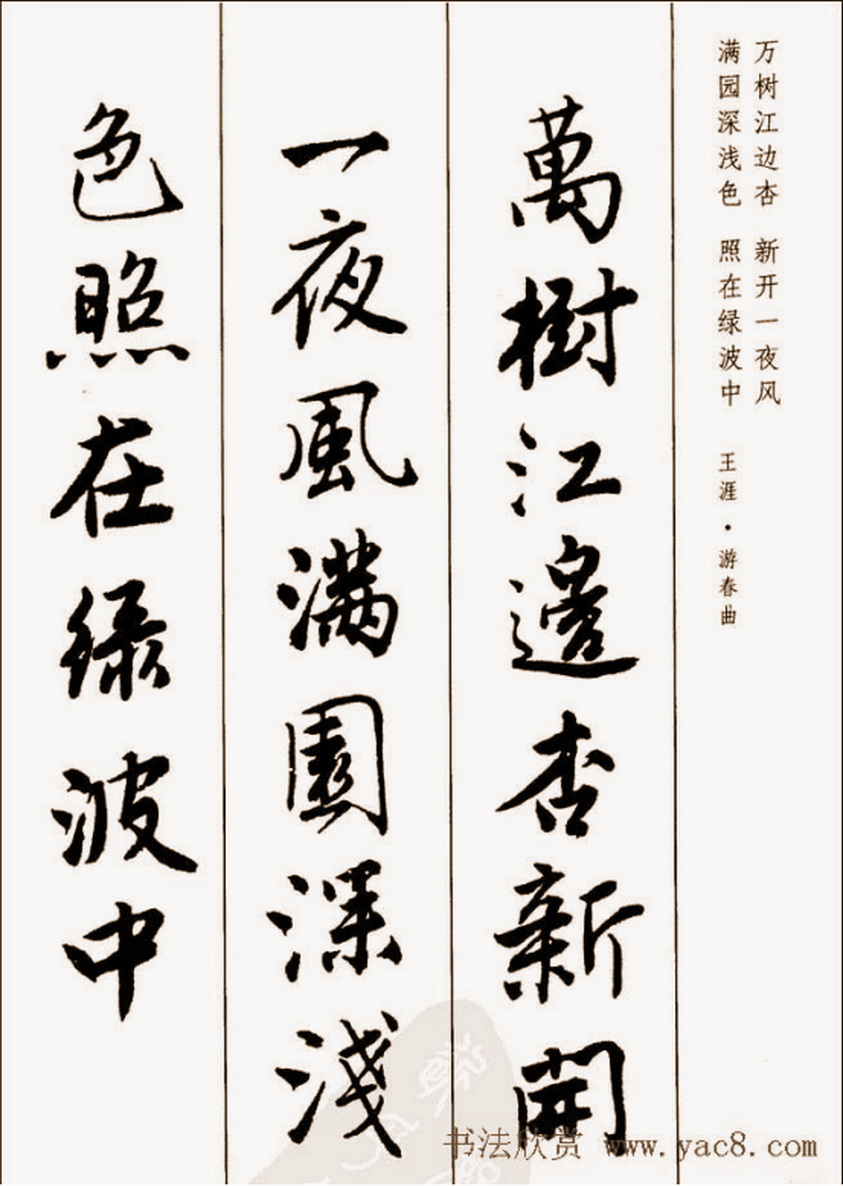 万树江边杏 新开一夜风
满园深浅色 照在绿波中 王涯·游春曲
萬樹江邊杏新開
一夜風滿園深淺
色照在绿波中
书法欣赏 www.yac8.com